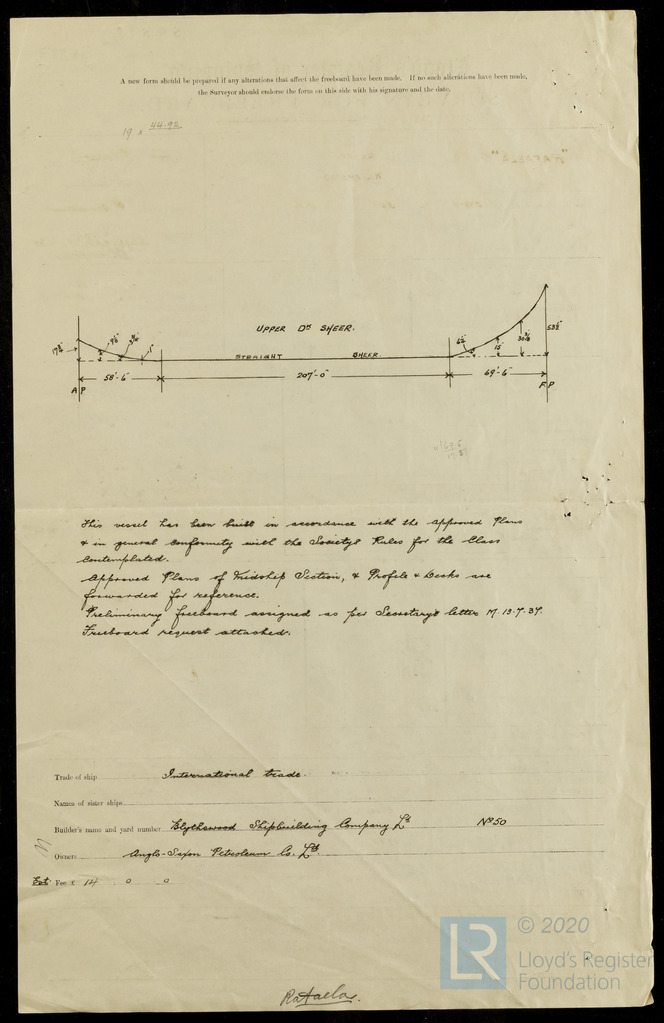 A new form should be prepared if any alterations that affect the freeboard have been made. If no such alterations have been made,
the Surveyor should endorse the form on this side with his signature and the date.
44.92
UPPER Dk SHEER.
STRAIGHT SHEER.
58'-6" 207'-0" 69'-6"
A P F P
This vessel has been built in accordance with the approved Plans
& in general conformity with the Society's Rules for the Class
contemplated.
Approved Plans of Midship Section, & Profile & Decks are
forwarded for reference.
Preliminary freeboard assigned as per Secretary's letter M. 13.7.37.
Freeboard request attached.
Trade of ship International trade.
Names of sister ships
Builder's name and yard number Blythswood Shipbuilding Company Ld No 50
Owners Anglo-Saxon Petroleum Co. Ltd.
Fee £ 14 0 0
LR © 2020
Lloyd's Register
Foundation
Rafaela.